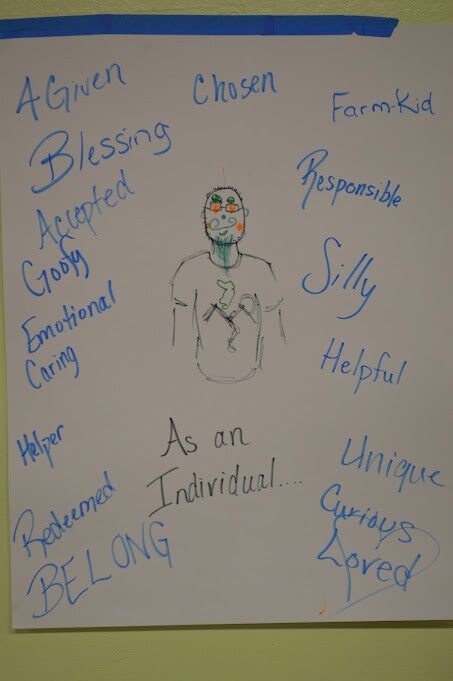 A Given
Blessing
Accepted
Goofy
Emotional
Caring
Helper
Redeemed
BELONG
Chosen
As an
Individual....
Farm-Kid
Responsible
Silly
Helpful
Unique
Curious
Loved